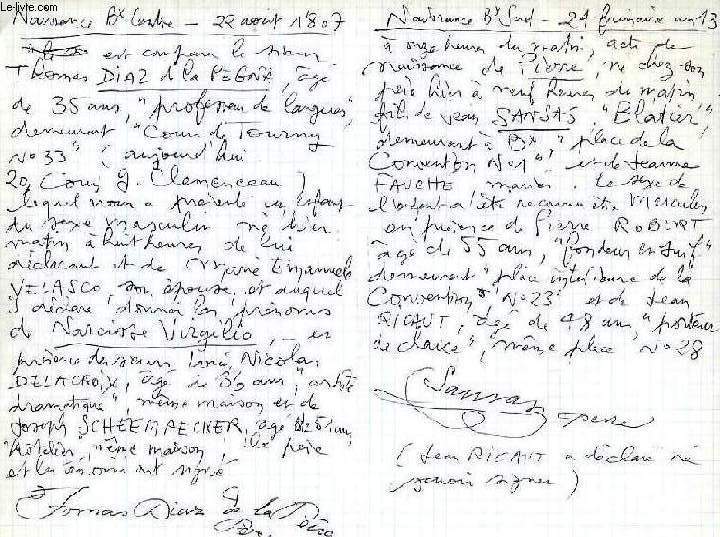 Le-livre.com
Naissance Bx Centre – 22 août 1807
est comparu le sieur
Thomas DIAZ de la PEÑA, âgé
de 35 ans, "professeur de langues",
demeurant "Cours de Tourny
N° 33" (aujourd'hui
20, Cours G. Clemenceau)
lequel nous a présenté un enfant
du sexe masculin né hier
matin à huit heures de lui
déclarant et de Emanuela
VELASCO, son épouse, et auquel
il déclare donner les prénoms
de Narcisse Virgilio, – en
présence des sieurs Nicolas
DELACROIX, âgé de 36 ans, "artiste
dramatique", même maison et de
Joseph SCHEEMAECKER, âgé de 51 ans
même maison, le père
et les témoins ont signé
Tomas Diaz de la Peña
Naissance Bx Sud – 21 frimaire an 13
à onze heures du matin, acte de
naissance de Pierre, né chez son
père hier à neuf heures du matin,
fils de Jean SANSAS, "Blatier",
demeurant à Bx, "place de la
Convention N° 1" et de Jeanne
FAUCHE, mariés. Le sexe de
l'enfant a été reconnu être masculin
en présence de Pierre ROBERT
âgé de 55 ans, "fondeur en suif"
demeurant "place intérieure de la
Convention, N° 23" et de Jean
RICAUT, âgé de 48 ans, "porteur
de chaise", même place N° 28
Sansas
père
(Jean RICAUT a déclaré ne
savoir signer)